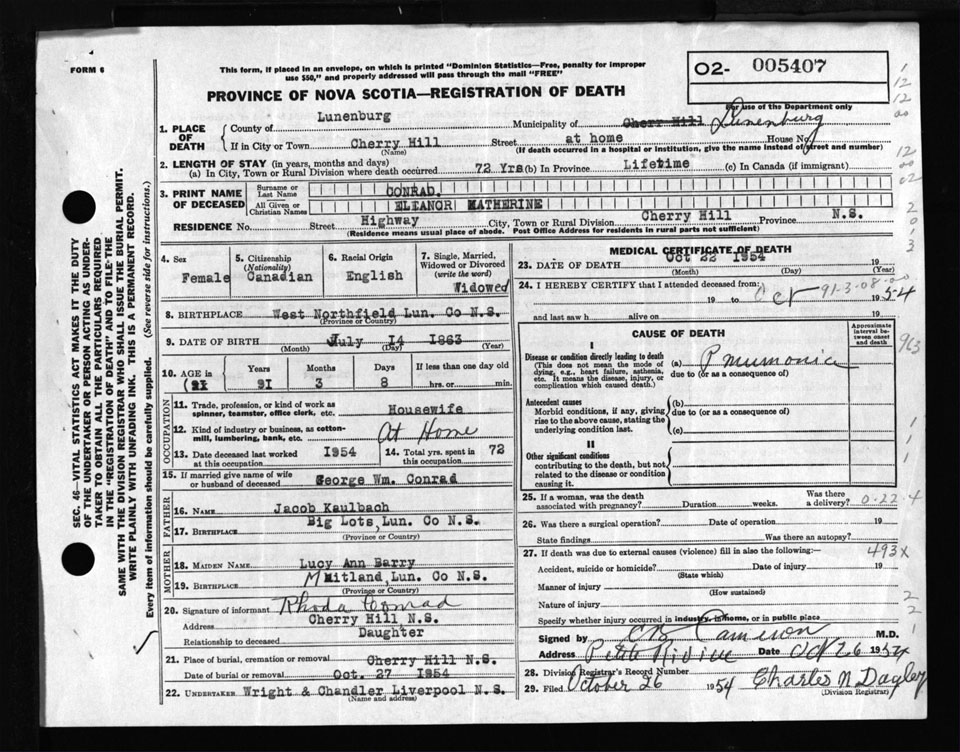 FORM 6
This form, if placed in an envelope, on which is printed "Dominion Statistics—Free, penalty for improper
use $50," and properly addressed will pass through the mail "FREE"
O2- 005407
PROVINCE OF NOVA SCOTIA—REGISTRATION OF DEATH
For use of the Department only
1. PLACE OF DEATH
County of Lunenburg Municipality of Cherr Hill Lunenburg
If in City or Town Cherry Hill Street at home House No
(Name) (If death occurred in a hospital or institution, give the name instead of street and number)
2. LENGTH OF STAY (in years, months and days)
(a) In City, Town or Rural Division where death occurred 72 Yrs (b) In Province Lifetime (c) In Canada (if immigrant)
3. PRINT NAME OF DECEASED
Surname or Last Name CONRAD.
All Given or Christian Names ELEANOR KATHERINE
RESIDENCE No. Street Highway City, Town or Rural Division Cherry Hill Province N.S.
(Residence means usual place of abode. Post Office Address for residents in rural parts not sufficient)
4. Sex Female
5. Citizenship (Nationality) Canadian
6. Racial Origin English
7. Single, Married, Widowed or Divorced (write the word) Widowed
8. BIRTHPLACE West Northfield Lun. Co N.S.
(Province or Country)
9. DATE OF BIRTH July 14 1863
(Month) (Day) (Year)
10. AGE in Years Months Days If less than one day old
(91 91 3 8 hrs. or min.
OCCUPATION
11. Trade, profession, or kind of work as spinner, teamster, office clerk, etc. Housewife
12. Kind of industry or business, as cotton-mill, lumbering, bank, etc. At Home
13. Date deceased last worked at this occupation 1954
14. Total yrs. spent in this occupation 72
15. If married give name of wife or husband of deceased George Wm. Conrad
FATHER
16. NAME Jacob Kaulbach
17. BIRTHPLACE Big Lots, Lun. Co N.S.
(Province or Country)
MOTHER
18. MAIDEN NAME Lucy Ann Barry
19. BIRTHPLACE Maitland, Lun. Co N.S.
(Province or Country)
20. Signature of informant Rhoda Conrad
Address Cherry Hill N.S.
Relationship to deceased Daughter
21. Place of burial, cremation or removal Cherry Hill N.S.
Date of burial or removal Oct. 27 1954
22. UNDERTAKER Wright & Chandler Liverpool N.S.
(Name and address)
MEDICAL CERTIFICATE OF DEATH
23. DATE OF DEATH Oct 22 1954 19
(Month) (Day) (Year)
24. I HEREBY CERTIFY that I attended deceased from:
19 to Oct 1954
91-3-08
and last saw h alive on 19
CAUSE OF DEATH
Approximate interval between onset and death
I
Disease or condition directly leading to death
(This does not mean the mode of dying, e.g., heart failure, asthenia, etc. It means the disease, injury, or complication which caused death.)
(a) Pnumonia
due to (or as a consequence of)
Antecedent causes
Morbid conditions, if any, giving rise to the above cause, stating the underlying condition last.
(b)
due to (or as a consequence of)
(c)
II
Other significant conditions
contributing to the death, but not related to the disease or condition causing it.
25. If a woman, was the death associated with pregnancy? Duration weeks. Was there a delivery?
0-22-4
26. Was there a surgical operation? Date of operation 19
State findings Was there an autopsy?
27. If death was due to external causes (violence) fill in also the following:
493X
Accident, suicide or homicide? Date of injury 19
(State which)
Manner of injury
(How sustained)
Nature of injury
Specify whether injury occurred in industry, in home, or in public place
Signed by Cameron M.D.
Address Petite Riviere Date Oct 26 1954
28. Division Registrar's Record Number
29. Filed October 26 1954 Charles N Dagley
(Division Registrar)
SEC. 46—VITAL STATISTICS ACT MAKES IT THE DUTY
OF THE UNDERTAKER OR PERSON ACTING AS UNDER-
TAKER TO OBTAIN ALL THE PARTICULARS REQUIRED
IN THE "REGISTRATION OF DEATH" AND TO FILE THE
SAME WITH THE DIVISION REGISTRAR WHO SHALL ISSUE THE BURIAL PERMIT.
WRITE PLAINLY WITH UNFADING INK. THIS IS A PERMANENT RECORD.
Every item of information should be carefully supplied. (See reverse side for instructions.)